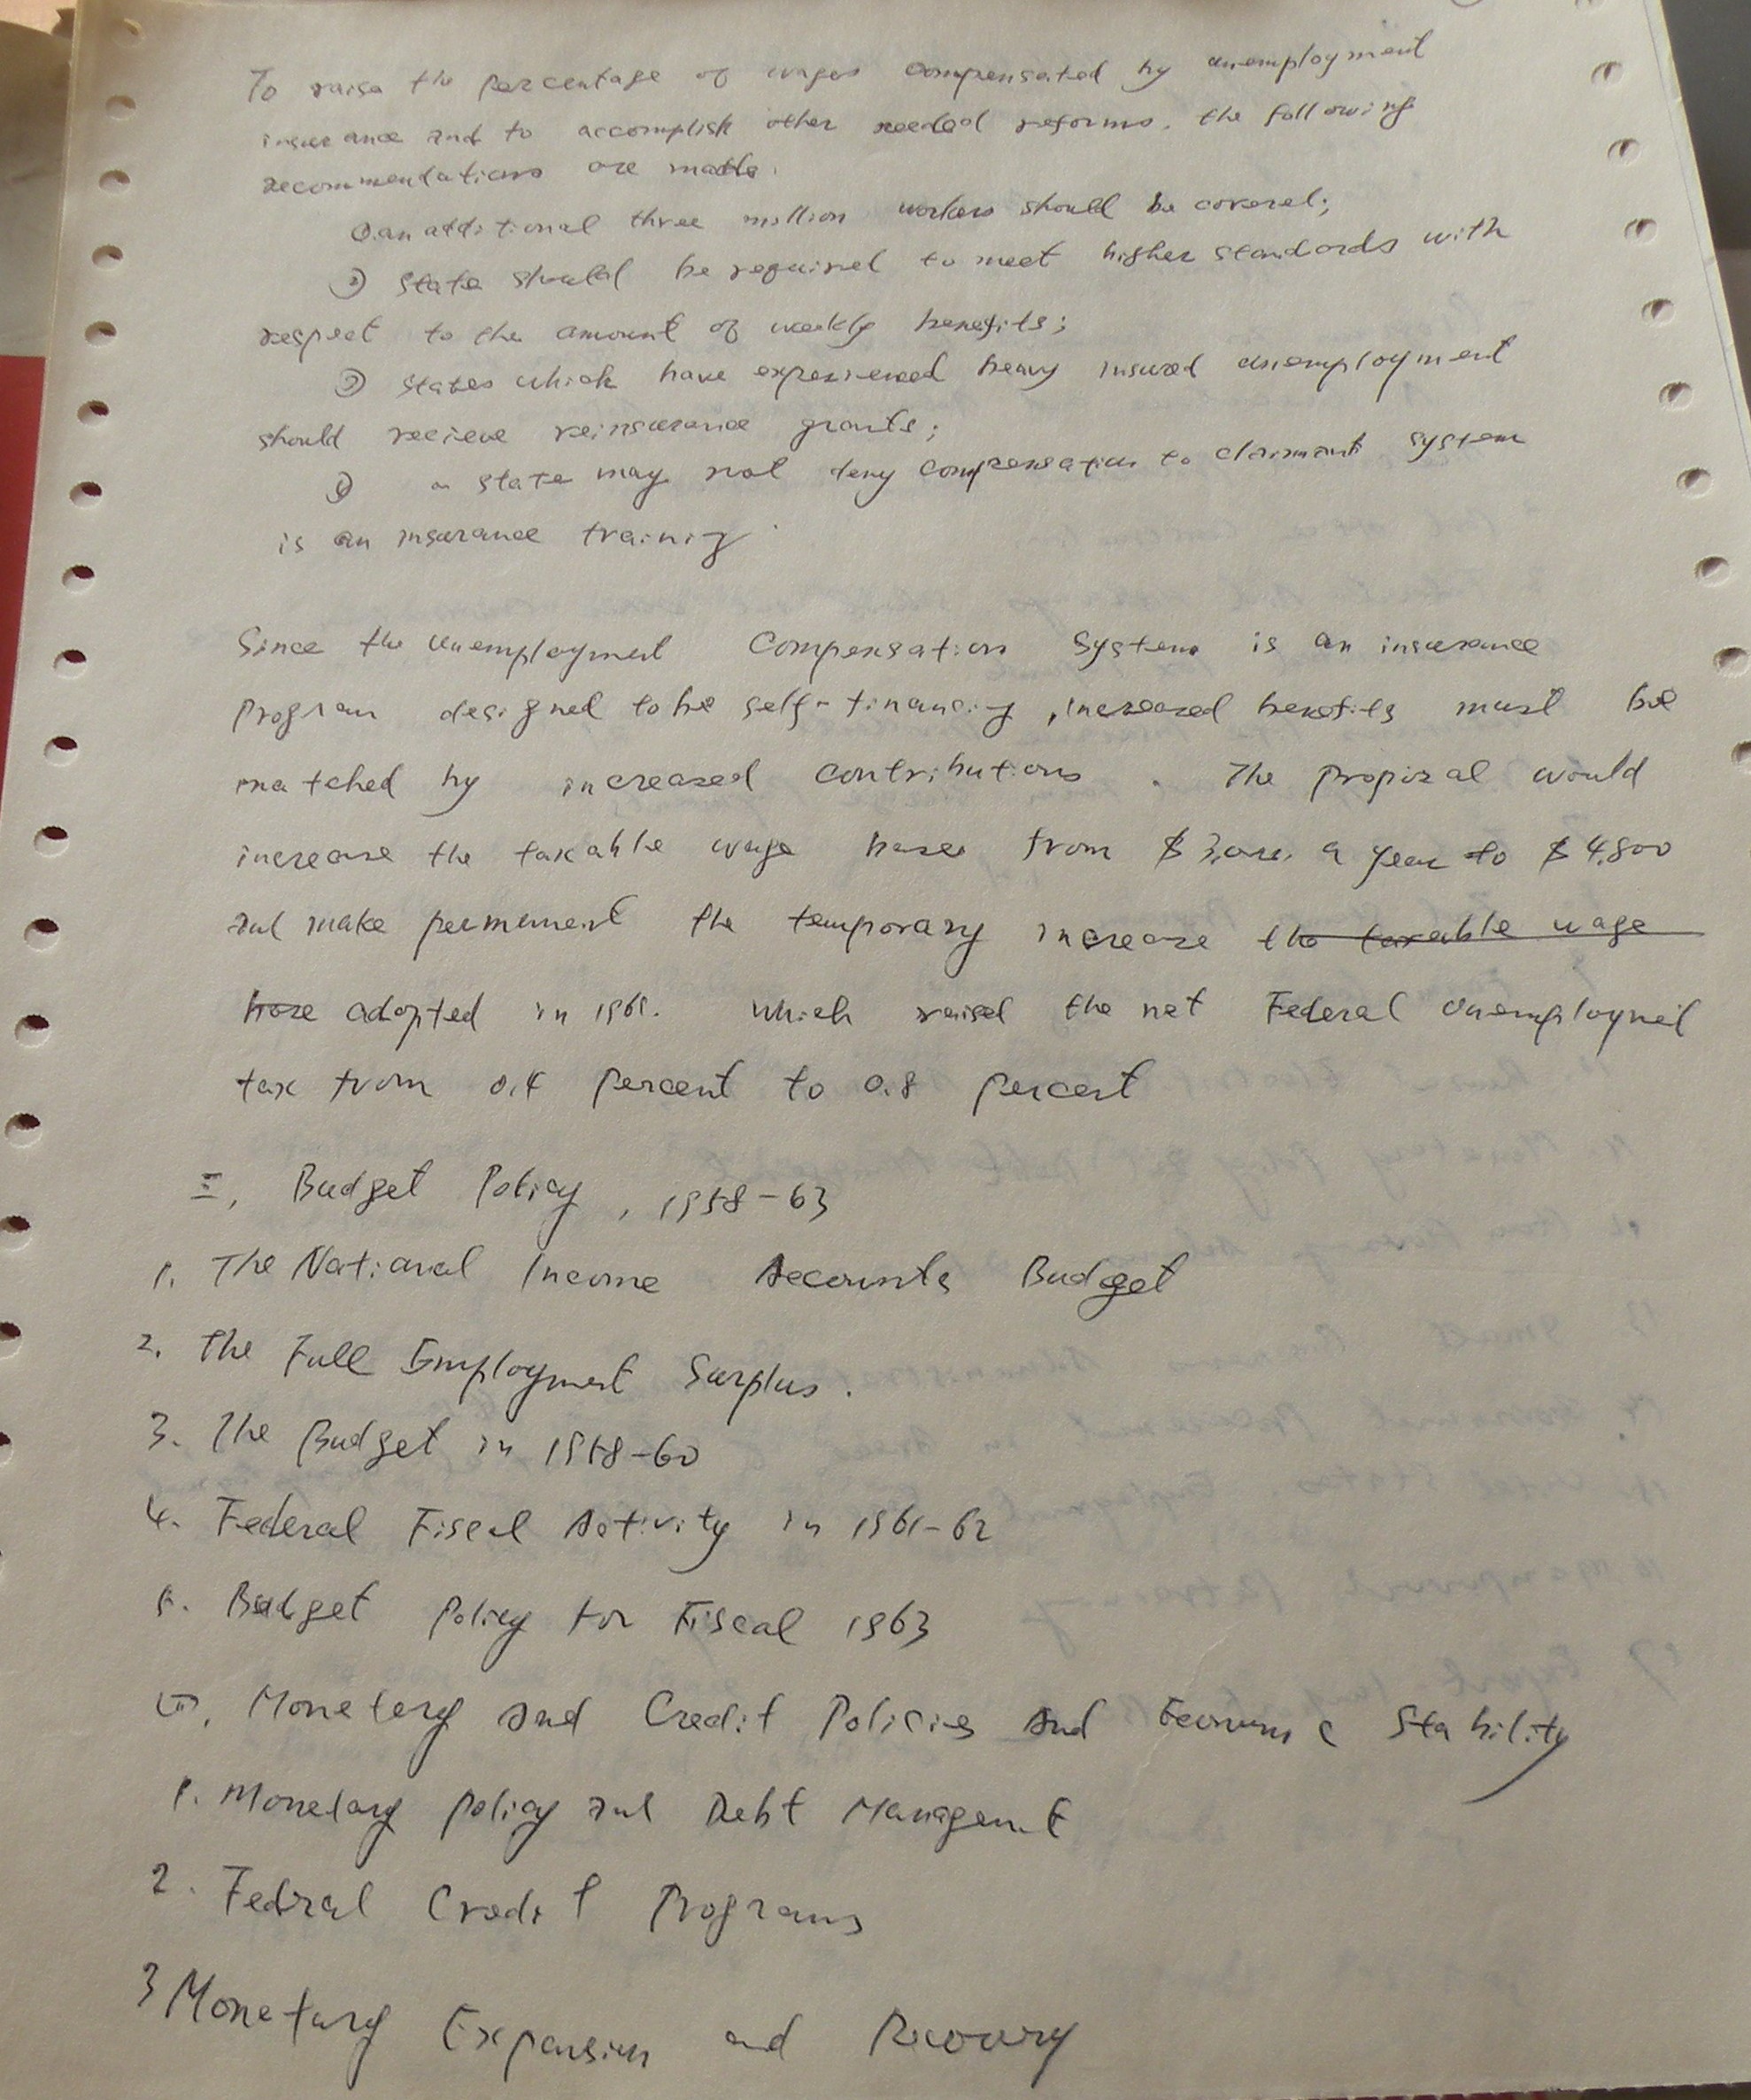 To raise the percentage of wages compensated by unemployment
insurance and to accomplish other needed reforms, the following
recommendations are made.
① an additional three million workers should be covered;
② State should be required to meet higher standards with
respect to the amount of weekly benefits;
③ States which have experienced heavy insured unemployment
should recieve reinsurance grants;
④ a state may not deny compensation to claimant system
is an insurance training
Since the Unemployment Compensation System is an insurance
Program designed to be self-financing, increased benefits must be
matched by increased contributions. The proposal would
increase the taxable wage base from $3,000 a year to $4,800
and make permanent the temporary increase the taxable wage
base adopted in 1961. Which raised the net Federal Unemployment
tax from 0.4 percent to 0.8 percent
II, Budget Policy, 1958-63
1. The National Income Accounts Budget
2. The Full Employment Surplus.
3. The Budget in 1958-60
4. Federal Fiscal Activity in 1961-62
5. Budget Policy for Fiscal 1963
Monetary and Credit Policies and Economic Stability
1. Monetary Policy and Debt Managemt
2. Federal Credit Programs
3 Monetary Expansion and Recovery